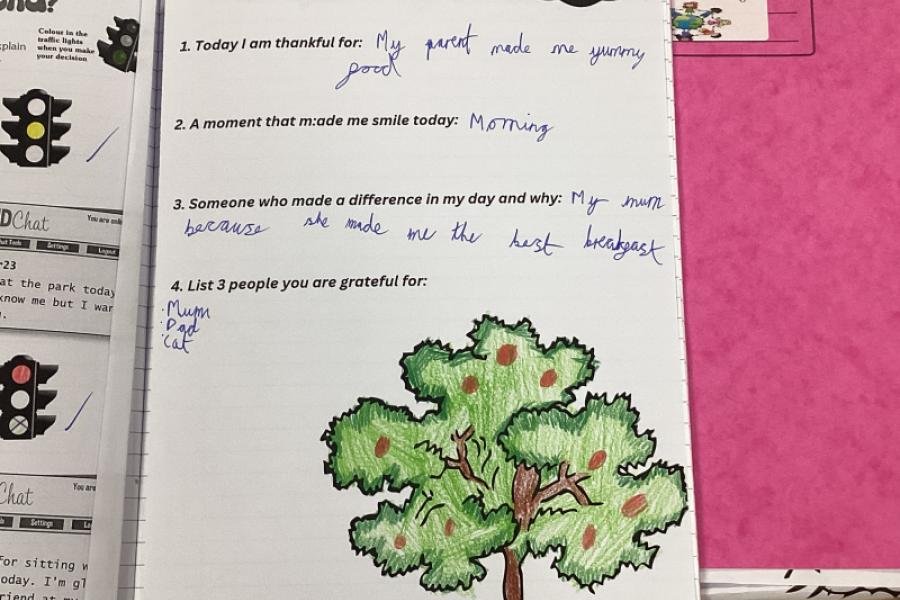 Colour in the
traffic lights
when you make
your decision
plain
Chat
You are
Settings
23
at the park today
know me but I wan
Chat
You are
Settings
for sitting w
oday. I'm gl
riend at my
1. Today I am thankful for: My parent made me yummy
good
2. A moment that m:ade me smile today: Morning
3. Someone who made a difference in my day and why: My mum
because she made me the best breakgast
4. List 3 people you are grateful for:
·Mum
·Dad
·Cat